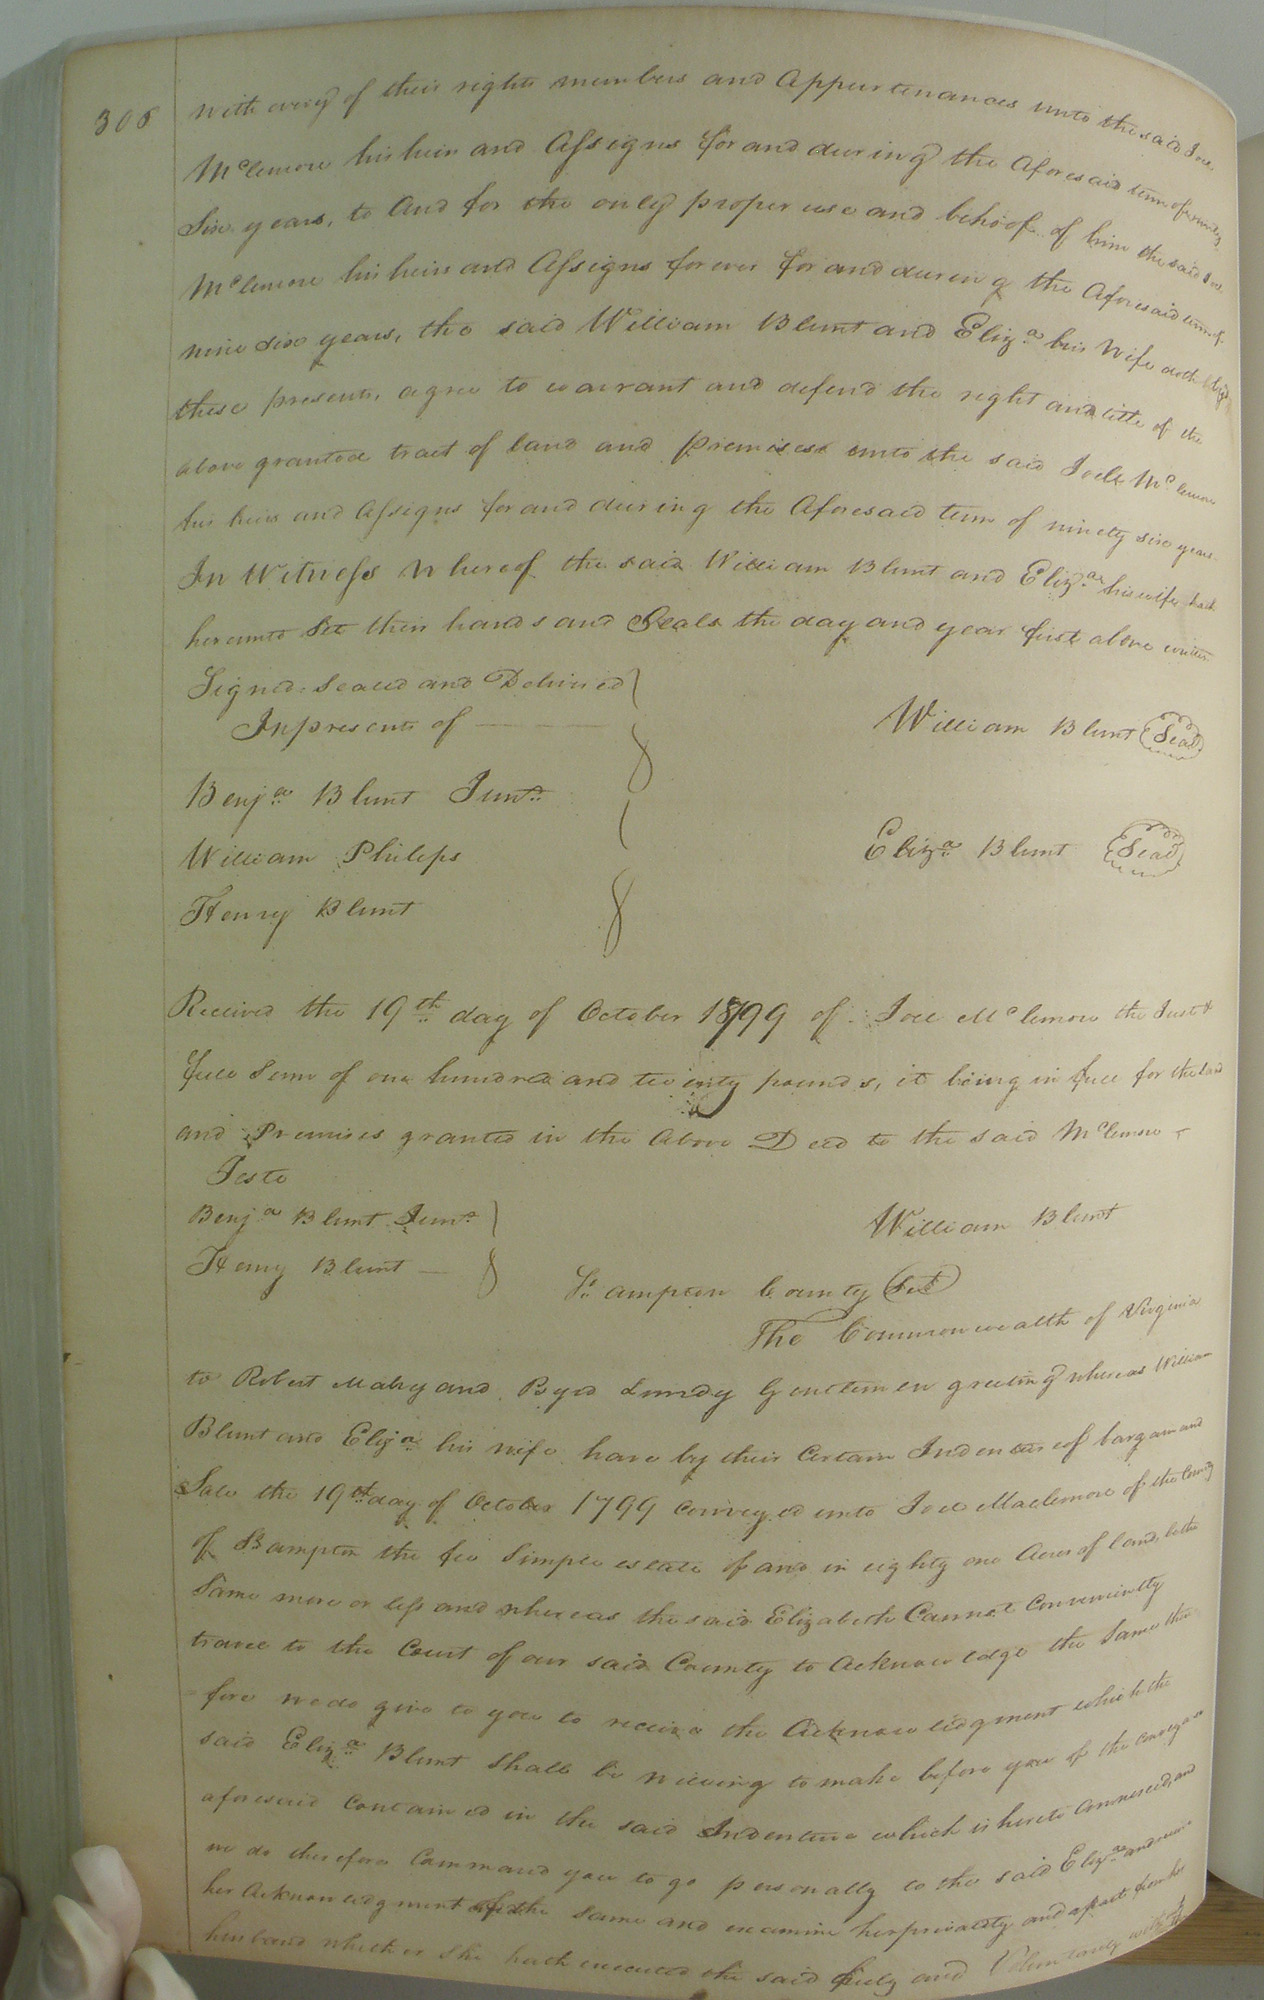 306
with every of their rights members and Appurtenances unto the said Joel
Mclemore his heirs and Assigns for and during the Aforesaid term of ninety
Six years, to And for the only proper use and behoof of him the said Joel
Mclemore his heirs and Assigns forever for and during the Aforesaid term of
nine six years, the said William Blunt and Eliza his Wife doth by
these presents, agree to warrant and defend the right and title of the
above granted tract of land and premises unto the said Joel Mclemore
his heirs and Assigns for and during the Aforesaid term of ninety six years
In Witness Whereof the said William Blunt and Eliza his wife hath
hereunto Set their hands and Seals the day and year first above written
Signed Sealed and Delivered
In presents of
William Blunt Seal
Benja Blunt Junr
William Philips
Eliza Blunt Seal
Henry Blunt
Received the 19th day of October 1799 of Joel Mclemore the Just &
full Sum of one hundred and twenty pounds, it being in full for the land
and Premises granted in the Above Deed to the said Mclemore
Teste
Benja Blunt Junr
William Blunt
Henry Blunt
So ampton County Sct
The Commonwealth of Virginia
to Robert Mabry and Byrd Lundy Gentlemen greeting whereas William
Blunt and Eliza his wife have by their Certain Indenture of bargain and
Sale the 19th day of October 1799 conveyed unto Joel Maclemore of the County
of Sampton the fee Simple estate of and in eighty one Acres of land, be the
Same more or less and whereas the said Elizabeth Cannot Conveniently
travel to the Court of our said County to Acknowledge the Same there
fore we do give to you to receive the Acknowledgment which the
said Eliza Blunt shall be willing to make before you of the conveyance
aforesaid contained in the said Indenture which is hereto Connected, and
we do therefore Command you to go personally to the said Eliza and receive
her Acknowledgment of the same and examine her privately and apart from her
husband whether she hath executed the said freely and Voluntarily